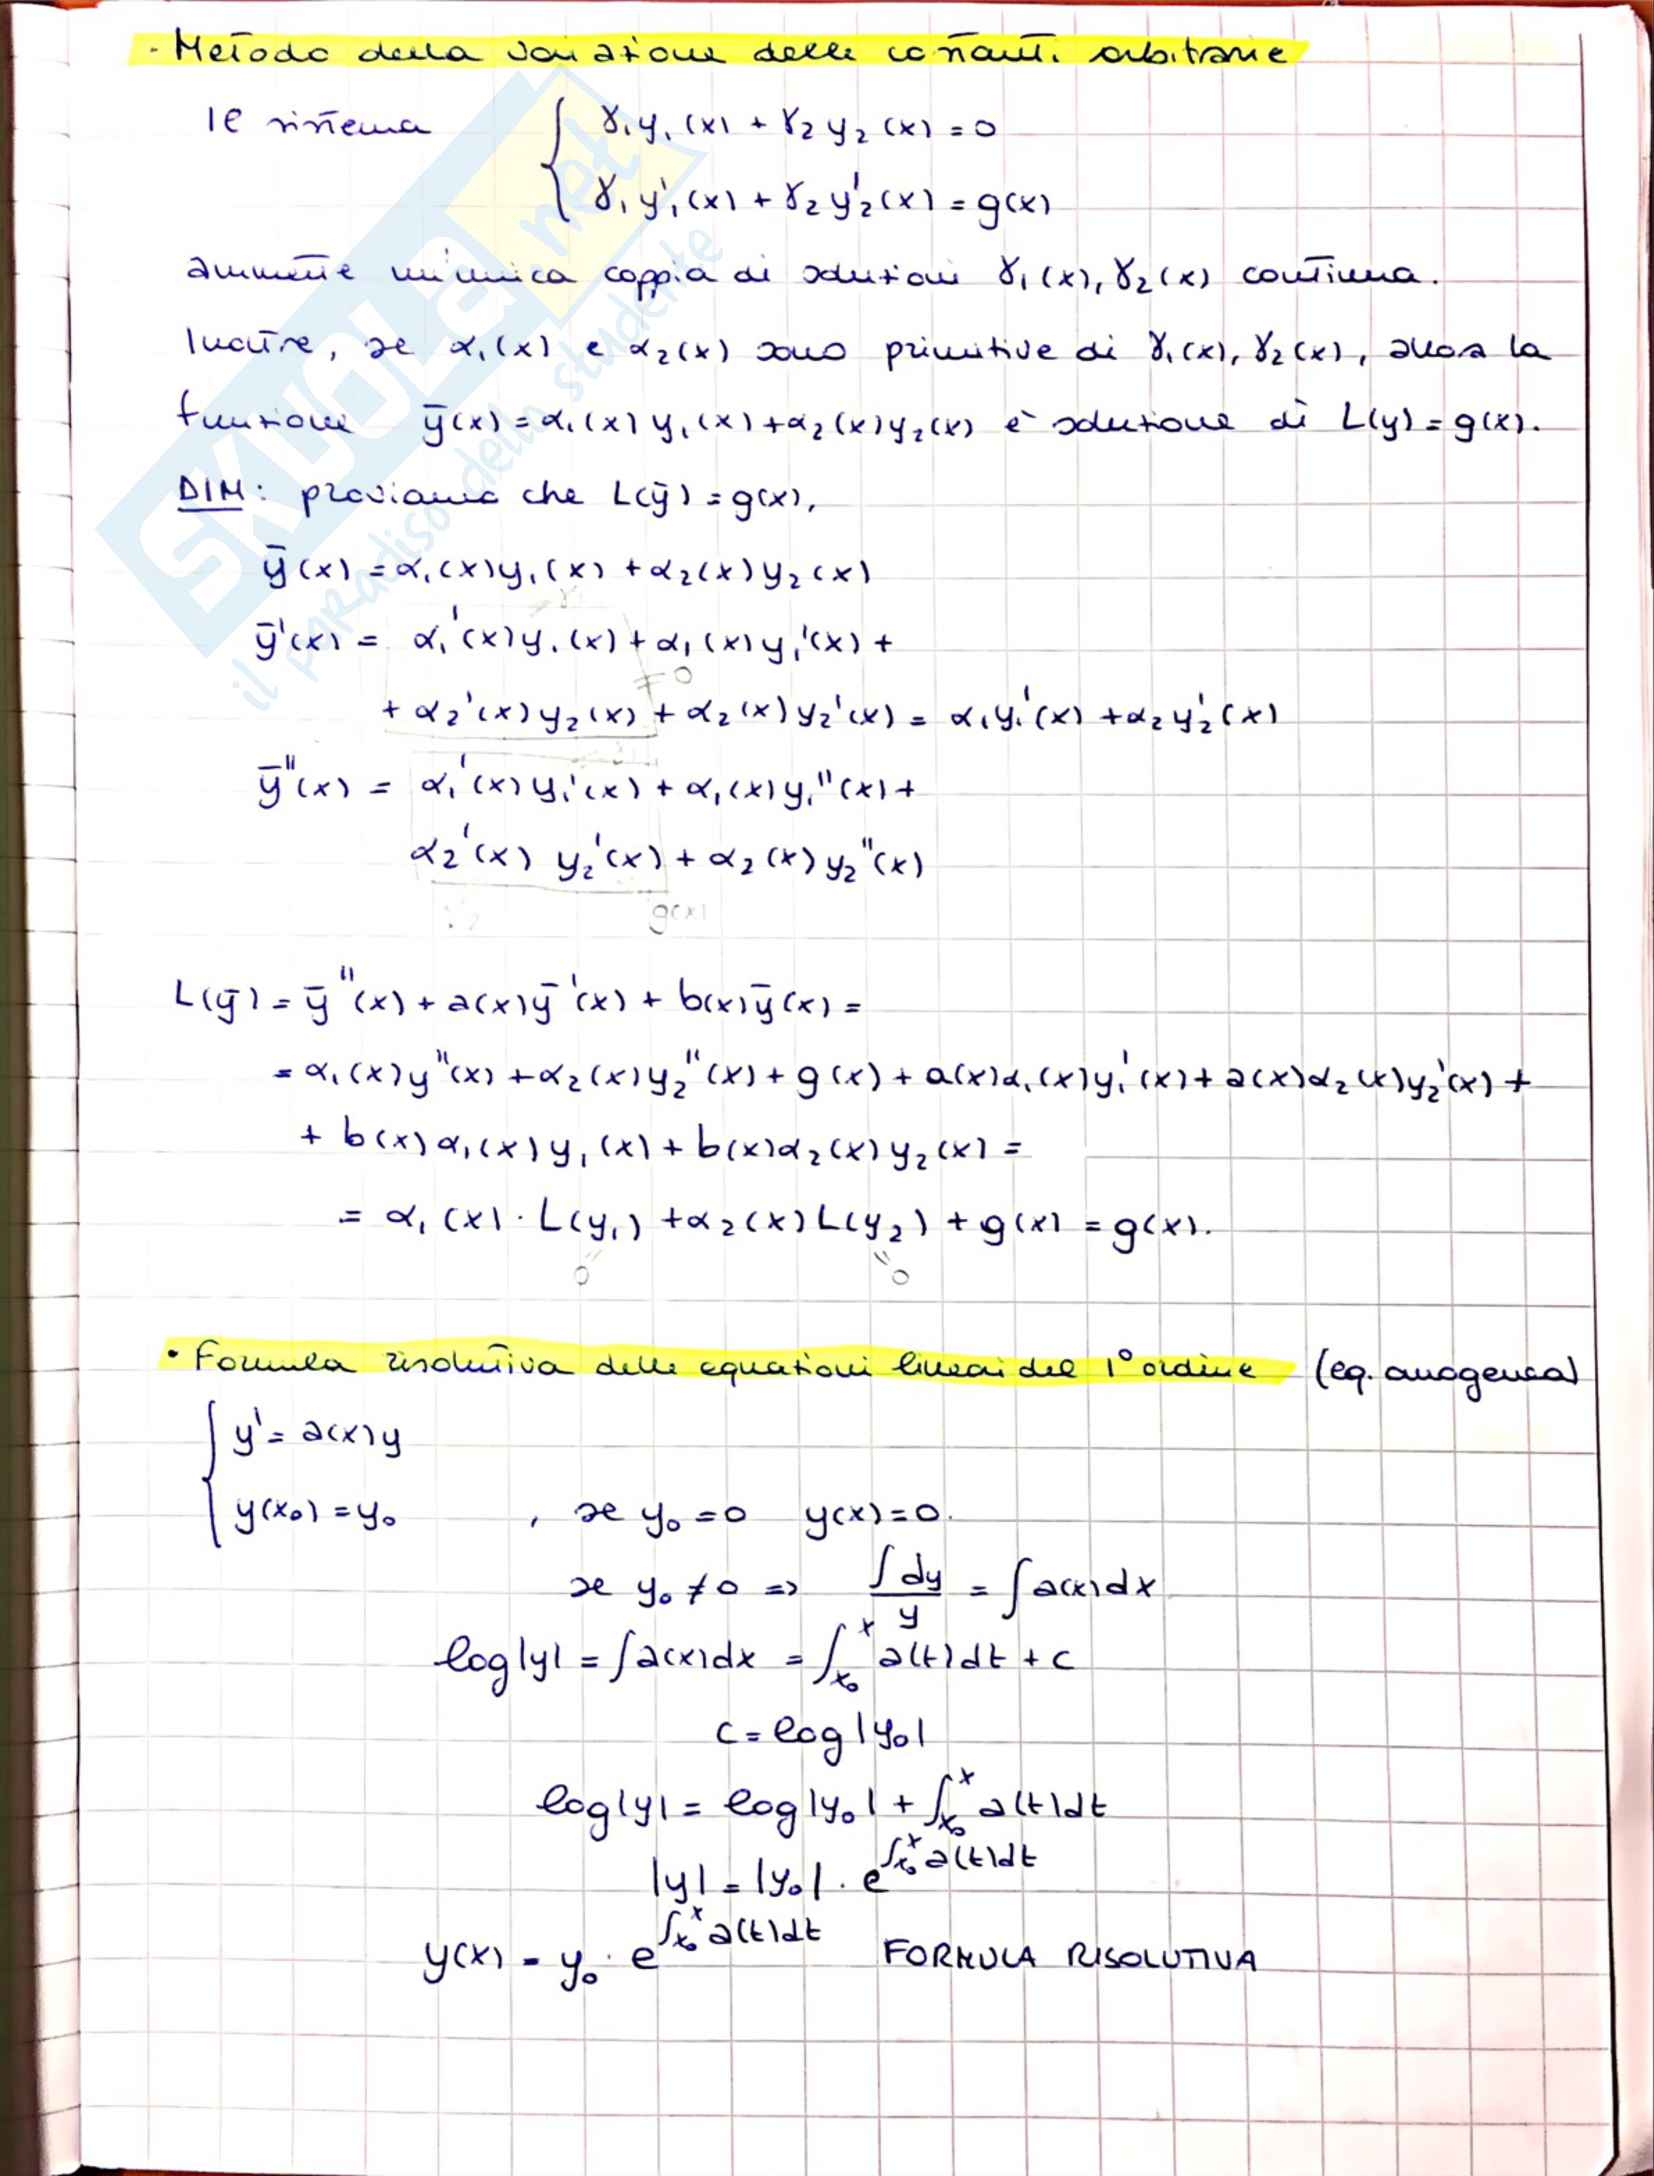 · Metodo della variazione delle costanti arbitrarie
Il sistema { γ₁y₁(x) + γ₂y₂(x) = 0
γ₁y₁'(x) + γ₂y₂'(x) = g(x)
ammette un'unica coppia di soluzioni γ₁(x), γ₂(x) continua.
Inoltre, se α₁(x) e α₂(x) sono primitive di γ₁(x), γ₂(x), allora la
funzione ȳ(x) = α₁(x)y₁(x) + α₂(x)y₂(x) è soluzione di L(y) = g(x).
DIM: proviamo che L(ȳ) = g(x),
ȳ(x) = α₁(x)y₁(x) + α₂(x)y₂(x)
ȳ'(x) = α₁'(x)y₁(x) + α₁(x)y₁'(x) +
= 0
+ α₂'(x)y₂(x) + α₂(x)y₂'(x) = α₁y₁'(x) + α₂y₂'(x)
ȳ''(x) = α₁'(x)y₁'(x) + α₁(x)y₁''(x) +
α₂'(x) y₂'(x) + α₂(x)y₂''(x)
g(x)
L(ȳ) = ȳ''(x) + a(x)ȳ'(x) + b(x)ȳ(x) =
= α₁(x)y''(x) + α₂(x)y₂''(x) + g(x) + a(x)α₁(x)y₁'(x) + a(x)α₂(x)y₂'(x) +
+ b(x)α₁(x)y₁(x) + b(x)α₂(x)y₂(x) =
= α₁(x) · L(y₁) + α₂(x)L(y₂) + g(x) = g(x).
"0 "0
• Formula risolutiva delle equazioni lineari del 1° ordine (eq. omogenea)
{ y' = a(x)y
y(x₀) = y₀ , se y₀ = 0 y(x) = 0.
se y₀ ≠ 0 => ∫dy/y = ∫a(x)dx
log|y| = ∫a(x)dx = ∫ₓ₀ˣ a(t)dt + c
c = log|y₀|
log|y| = log|y₀| + ∫ₓ₀ˣ a(t)dt
|y| = |y₀| · e^∫ₓ₀ˣ a(t)dt
y(x) = y₀ · e^∫ₓ₀ˣ a(t)dt FORMULA RISOLUTIVA
SKUOLA.net
il paradiso dello studente